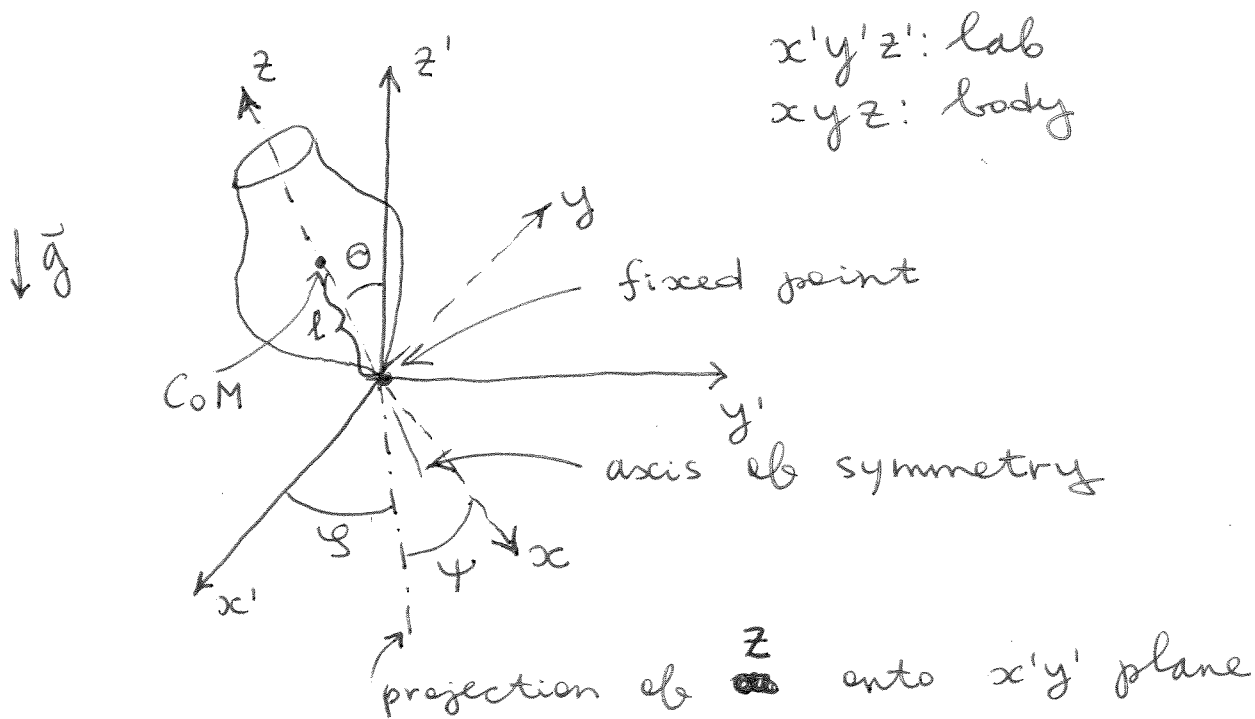 x'y'z': lab
xyz: body
z
z'
y
g⃗
θ
fixed point
l
CoM
y'
axis of symmetry
φ
ψ
x
x'
projection of z onto x'y' plane